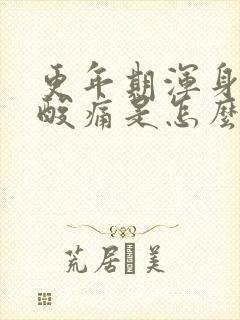 更年期渾身
酸痛是怎麼
荒居美